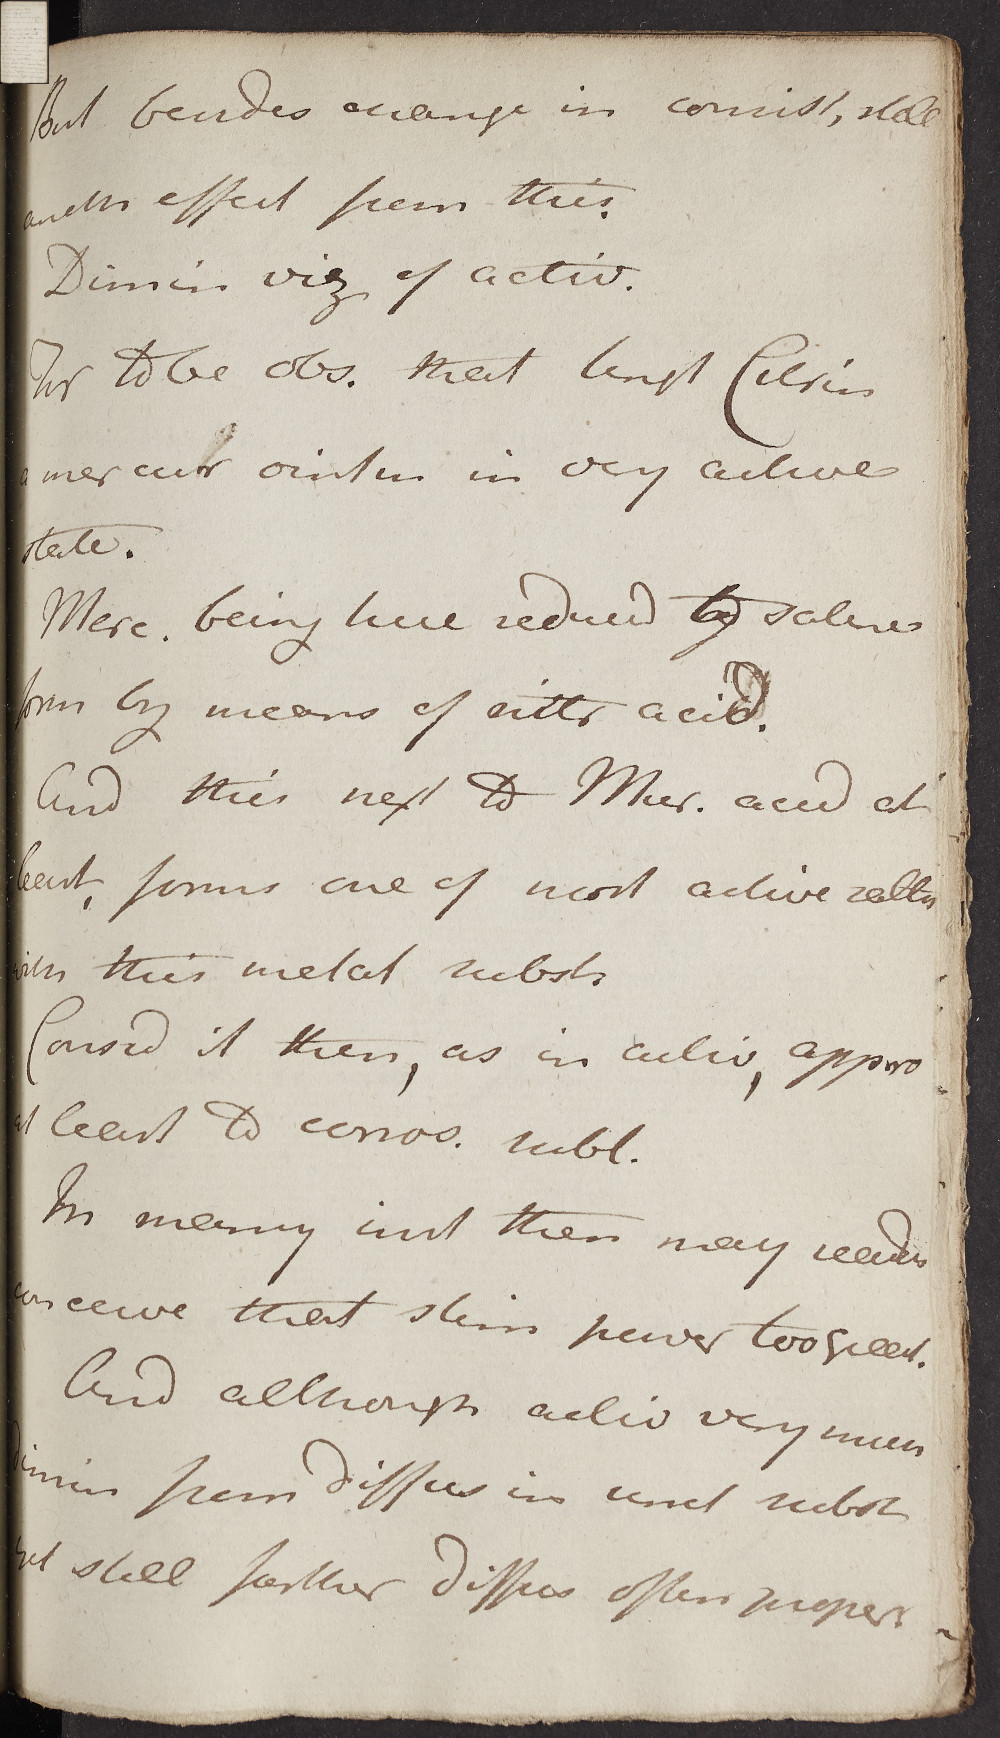 But besides change in consist, still
anothr effect from this.
Dimin viz of activ.
For to be obs. that Ungt Citrin
a mercur ointm in very active
state.
Merc. being here reduced to saline
form by means of nitr acid.
And this next to Mur. acid at
least, forms one of most active salts
with this metal subst
Consid it then, as in activ, appro
at least to corros. subl.
In many inst then may readily
conceive that stim power too great.
And although activ very much
dimin from diffus in unct subst
yet still farther diffus often proper.